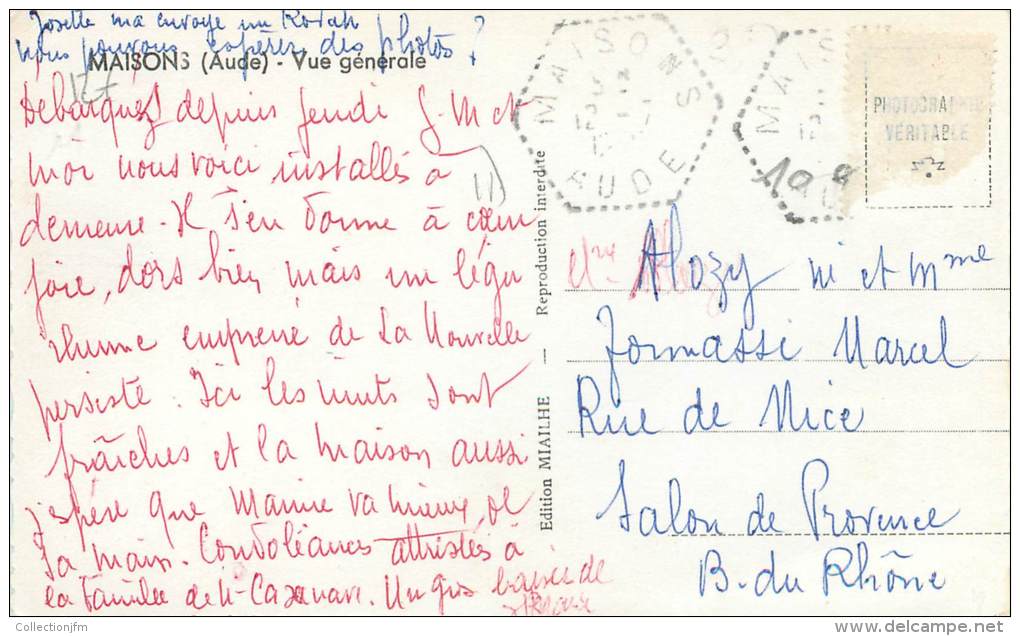 Josette m'a envoyé un Kodak
nous pouvons espérer des photos ?
MAISONS (Aude) - Vue générale
Débarqués depuis jeudi J-M et
moi nous voici installés à
demeure. Il s'en donne à cœur
joie, dors bien mais un léger
rhume emprené de La Nouvelle
persiste. Ici les nuits sont
fraîches et la maison aussi
j'espère que Mamie va mieux, de
sa main. Condoléances attristés à
la famille de Cazenave. Un gros baiser de
MAISONS
AUDE
MAIS
PHOTOGRAPHIE
VÉRITABLE
Reproduction interdite
Edition MIAILHE —
Alozy M et Mme
Tomassi Marcel
Rue de Nice
Salon de Provence
B. du Rhône
Collectionjfm
delcampe.net